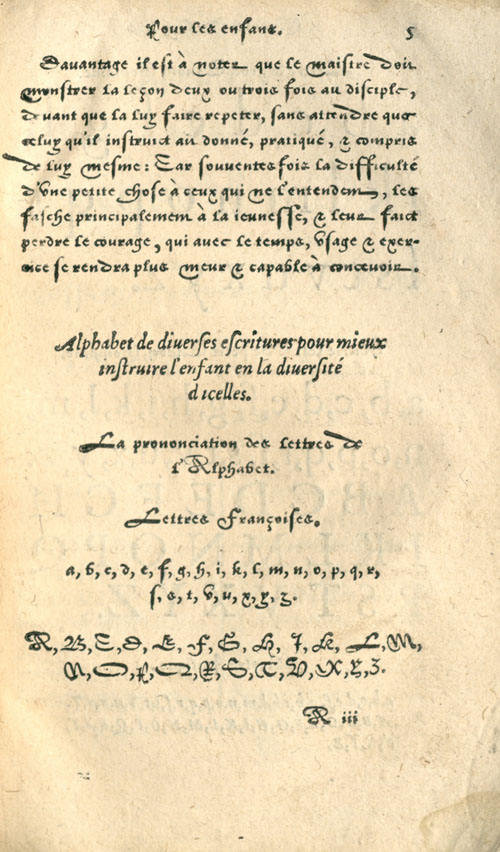 Pour les enfans. 5
Davantage il est à noter que le maistre doit
monstrer la leçon deux ou trois fois au disciple,
devant que la luy faire repeter, sans attendre que
celuy qu'il instruict ait donné, pratiqué, & compris
de luy mesme: Car souventesfois la difficulté
d'vne petite chose à ceux qui ne l'entendent, les
fasche principalement à la ieunesse, & leur faict
perdre le courage, qui avec le temps, vsage & exer-
cice se rendra plus meur & capable à concevoir.
Alphabet de diverses escritures pour mieux
instruire l'enfant en la diversité
dicelles.
La prononciation des lettres de
l'Alphabet.
Lettres Françoises.
a, b, c, d, e, f, g, h, i, k, l, m, n, o, p, q, r,
ſ, s, t, v, u, x, y, z.
A, B, C, D, E, F, G, H, I, K, L, M,
N, O, P, Q, R, S, T, V, X, Y, Z.
A iii